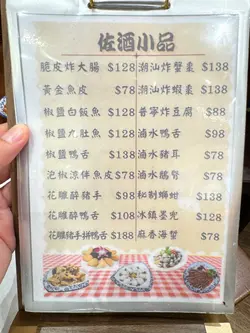 佐酒小品
脆皮炸大腸 $128 潮汕炸蟹棗 $138
黃金魚皮 $78 潮汕炸蝦棗 $138
椒鹽白飯魚 $128 普寧炸豆腐 $88
椒鹽九肚魚 $128 滷水鴨舌 $98
椒鹽鴨舌 $138 滷水豬耳 $78
泡椒涼拌魚皮 $78 滷水鵝腎 $78
花雕醉豬手 $98 秘制螄蚶 $138
花雕醉鴨舌 $108 冰鎮墨兜 $128
花雕豬手拼鴨舌 $188 麻香海蜇 $78